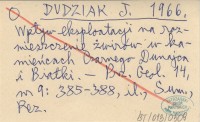 DUDZIAK J. 1966.
Wpływ eksploatacji na roz-
mieszczenie żwirów w ka-
mieńcach Czarnego Dunajca
i Białki. – Pr. Geol. 14,
nr 9: 385-388, il., Sum.,
Rez.